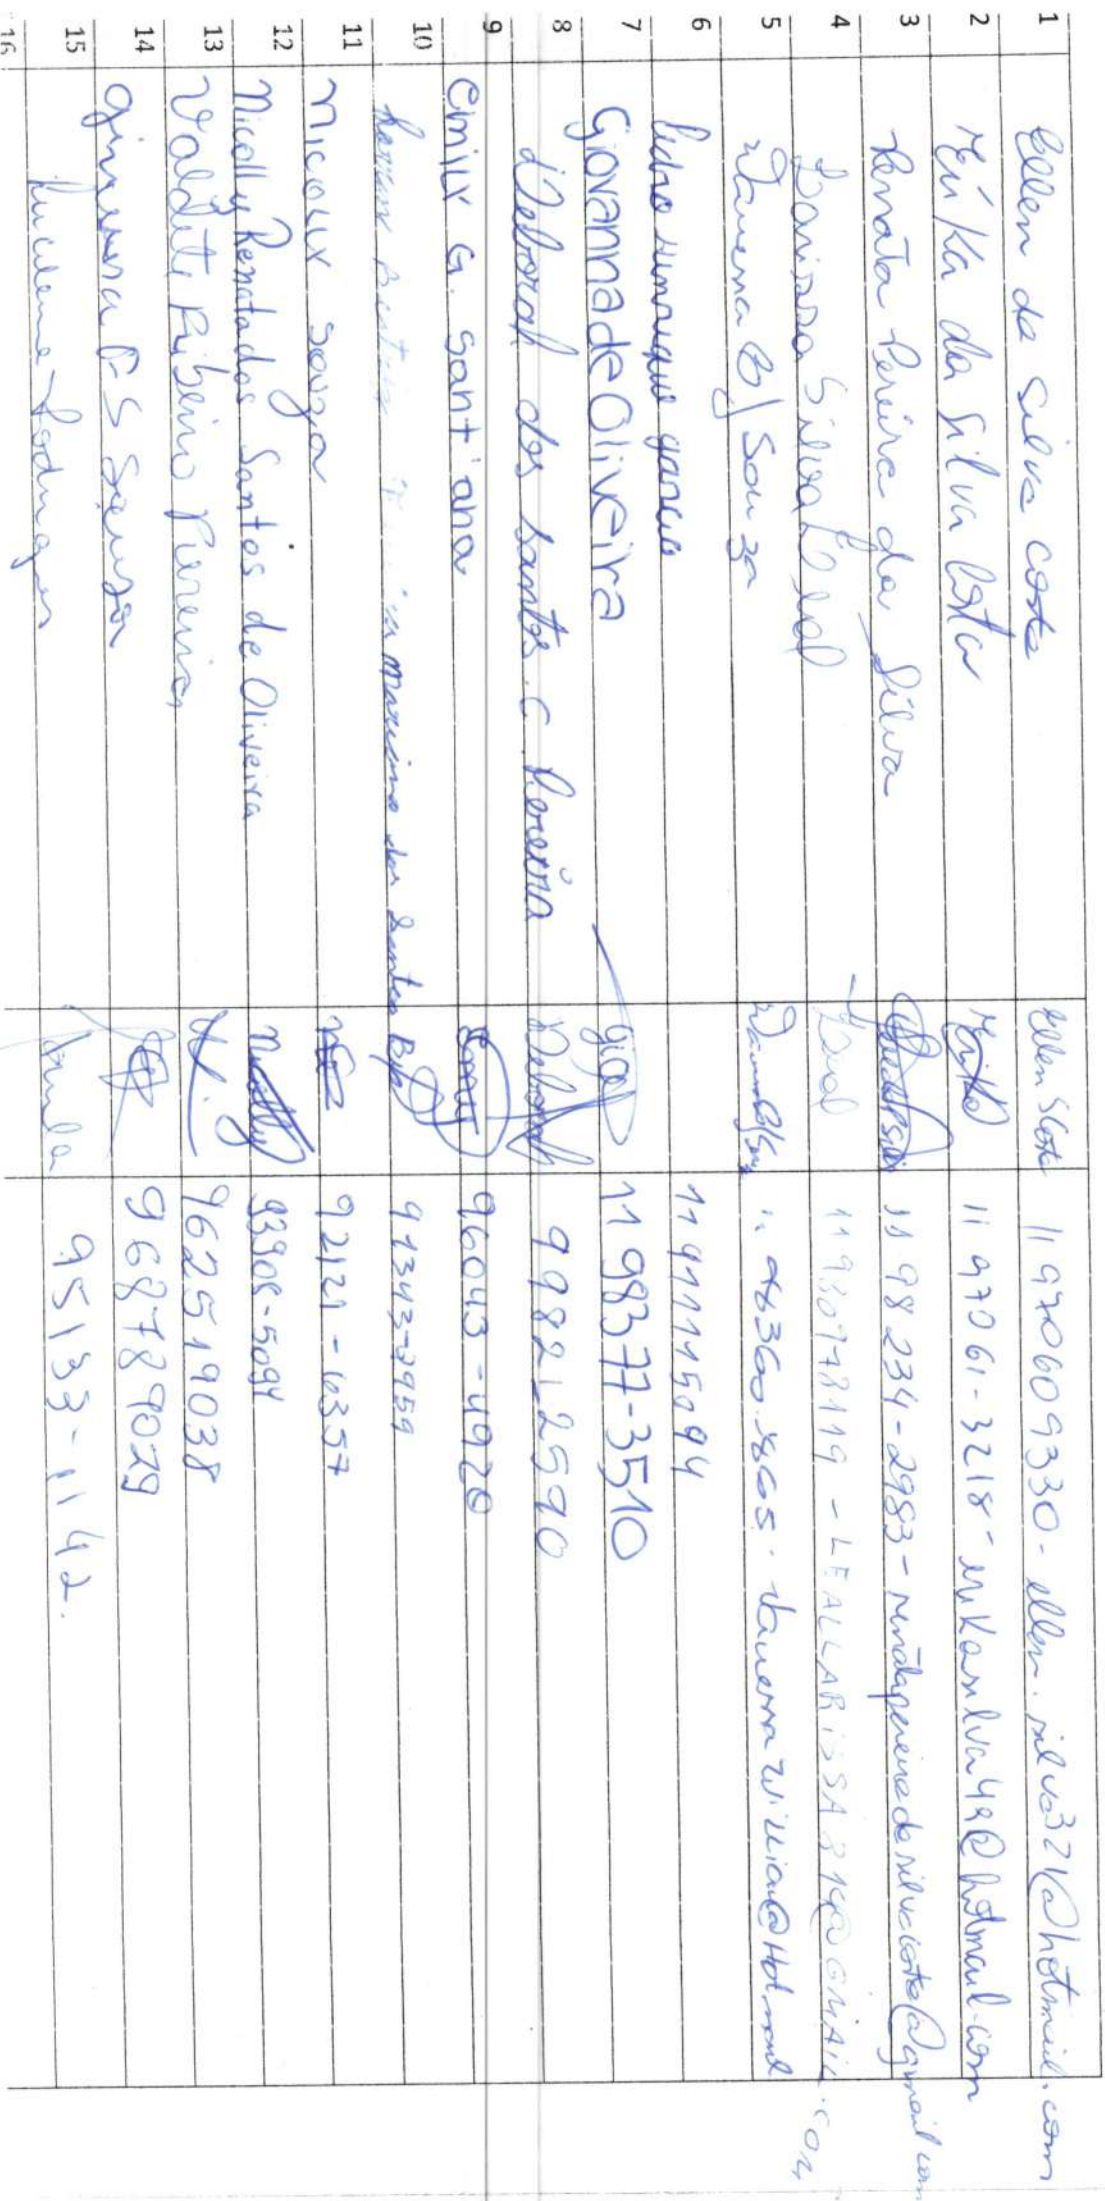 1 Ellen da silva costa Ellen SCosta 11 970609330 - ellen.silva321@hotmail.com
2 Erika da Silva Costa Erika 11 97061-3218 - erikasilva49@hotmail.com
3 Renata Pereira da Silva 11 98234-2983 - renatapereiradasilvacosta@gmail.com
4 Larissa Silva Leal Leal 11 930978119 - LEALLARISSA214@GMAIL.COM
5 B Souza 11 96360.8865.
6 Pedro Henrique garcia 11 911115094
7 Giovanna de Oliveira gio 11 98377-3510
8 Deborah dos Santos. C. Pereira Deborah 998212590
9 Emily G. Sant'ana Emily 96043-4920
10 dos Santos 91343-2959
11 nicolly souza 92121-6357
12 Nicolly Renata dos Santos de Oliveira Nicolly 93906-5094
13 Valdete Ribeiro Pereira 962519038
14 S Souza 968789029
15 Lucilene Rodrigues 95133-1142.
16